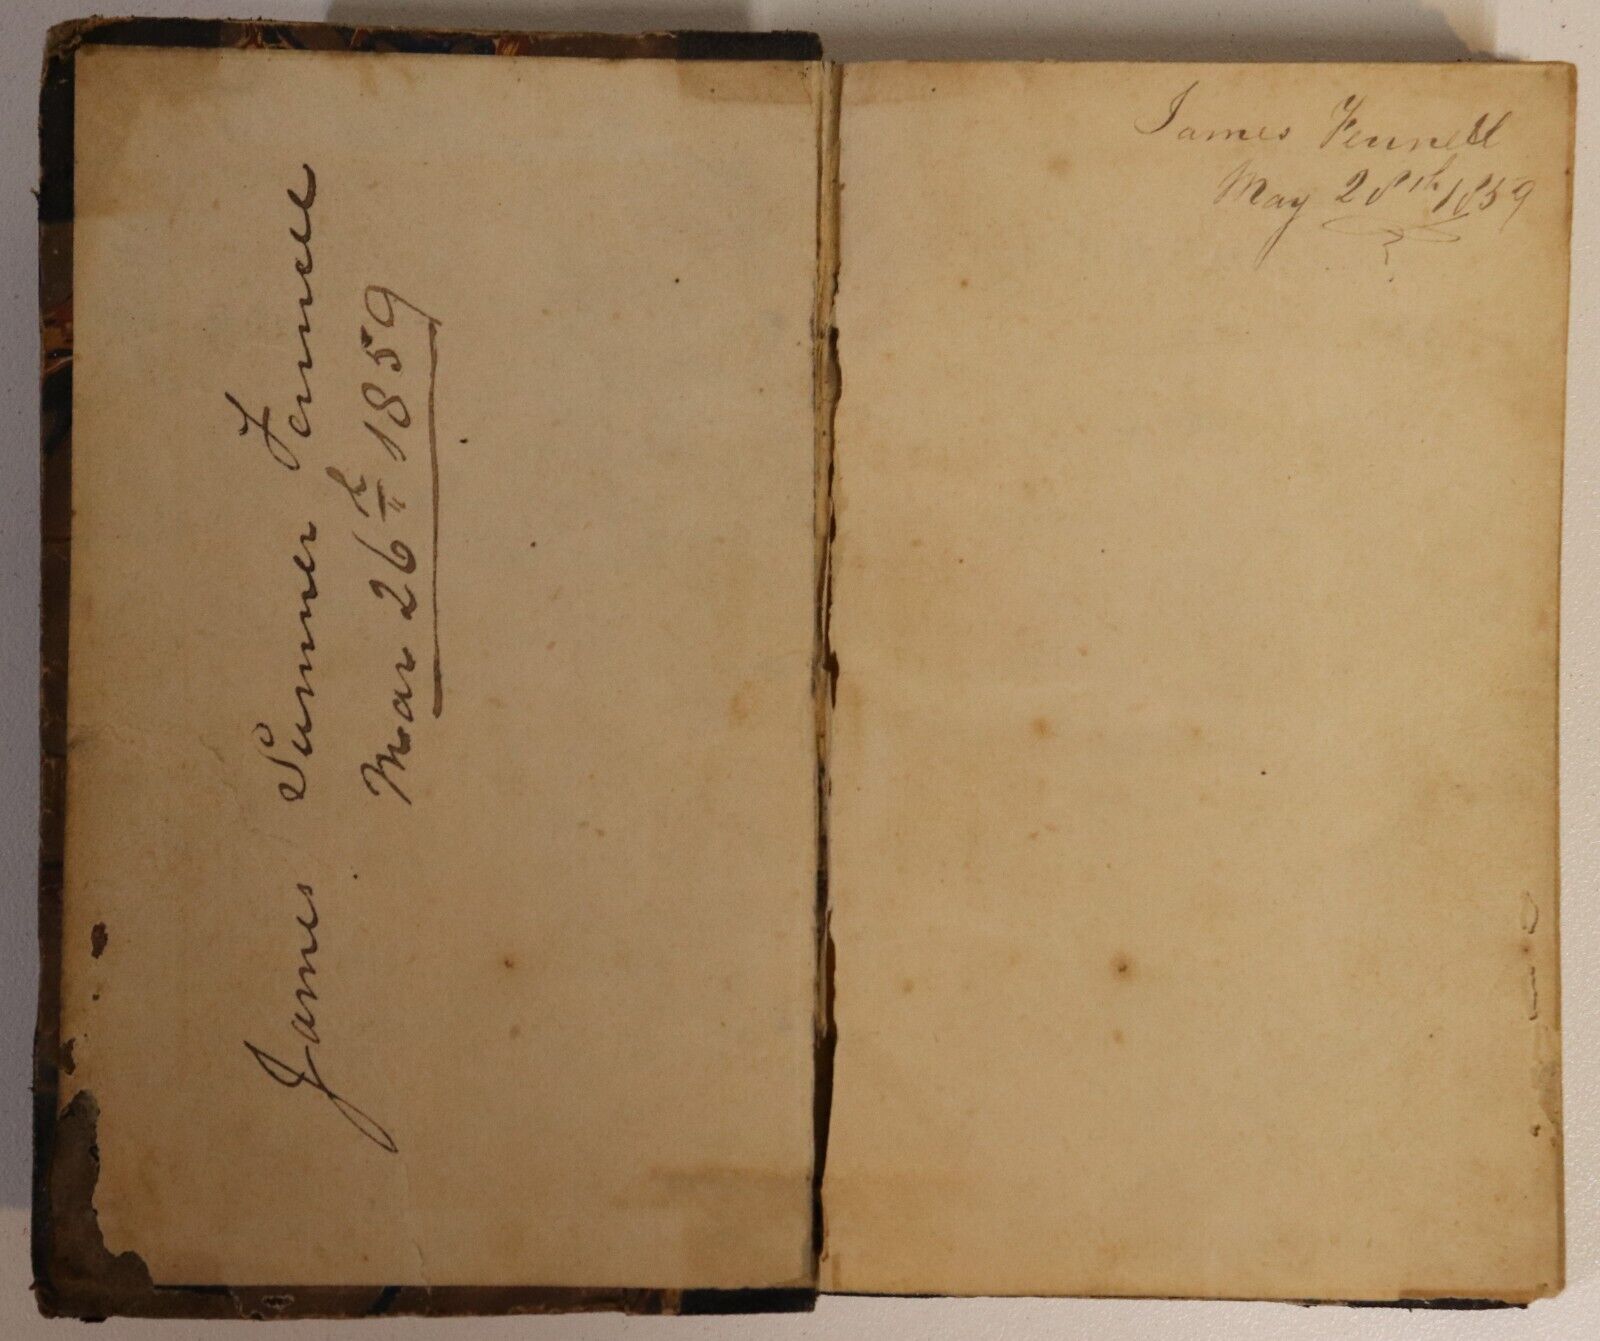 James Sumner Fennell
Mar 26th 1859
James Fennell
May 28th 1859